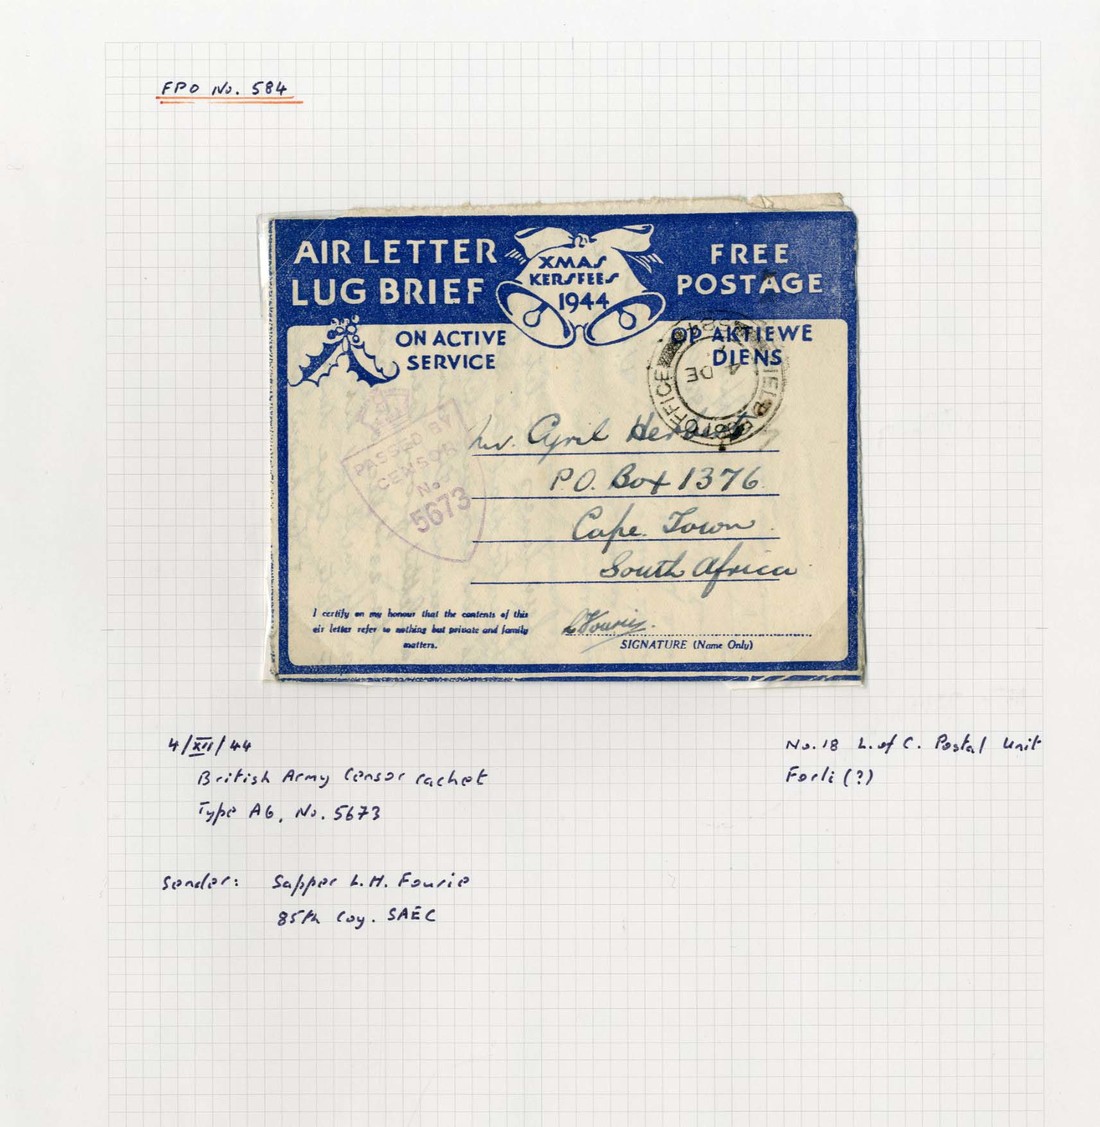 FPO No. 584
AIR LETTER
LUG BRIEF
XMAS
KERSFEES
1944
FREE
POSTAGE
ON ACTIVE
SERVICE
OP AKTIEWE
DIENS
FIELD POST OFFICE
584
4 DE
PASSED BY
CENSOR
No
5673
Cyril
P.O. Box 1376
Cape Town
South Africa
I certify on my honour that the contents of this
air letter refer to nothing but private and family
matters.
L Fourie.
SIGNATURE (Name Only)
4/XII/44
British Army Censor cachet
Type A6, No. 5673
No. 18 L. of C. Postal Unit
Forli (?)
Sender: Sapper L.H. Fourie
85th Coy. SAEC